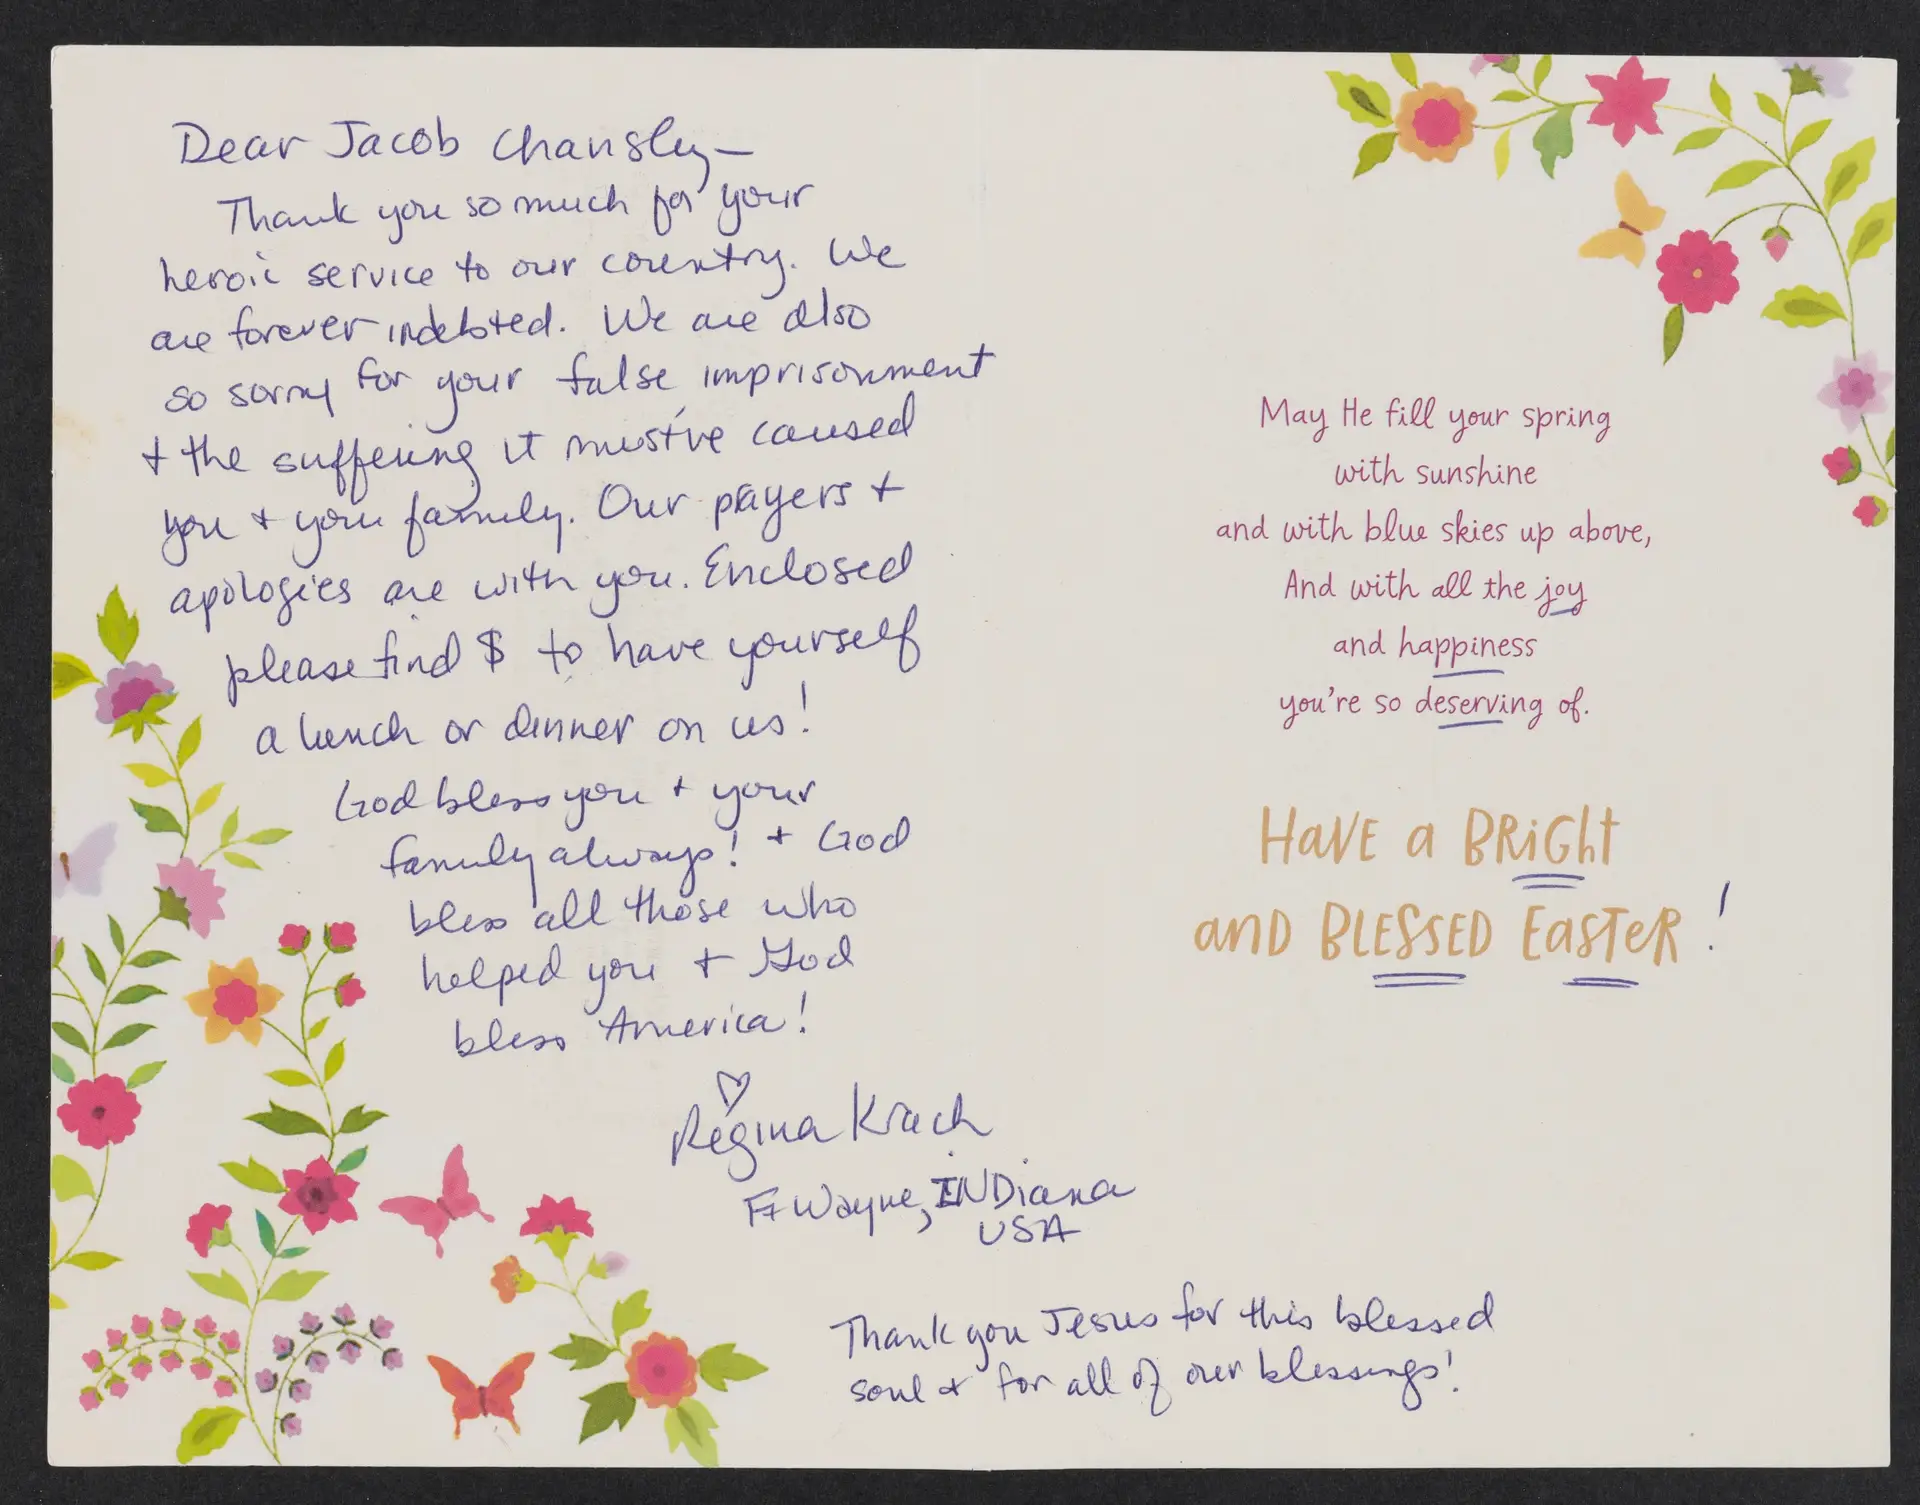 Dear Jacob Chansley—
Thank you so much for your
heroic service to our country. We
are forever indebted. We are also
so sorry for your false imprisonment
+ the suffering it must've caused
you + your family. Our prayers +
apologies are with you. Enclosed
please find $ to have yourself
a lunch or dinner on us!
God bless you + your
family always! + God
bless all those who
helped you + God
bless America!
♡
Regina Krach
Ft Wayne, INDiana
USA
Thank you Jesus for this blessed
soul + for all of our blessings!
May He fill your spring
with sunshine
and with blue skies up above,
And with all the joy
and happiness
you're so deserving of.
HAVE a BRiGht
and BLESSED EaSTeR!